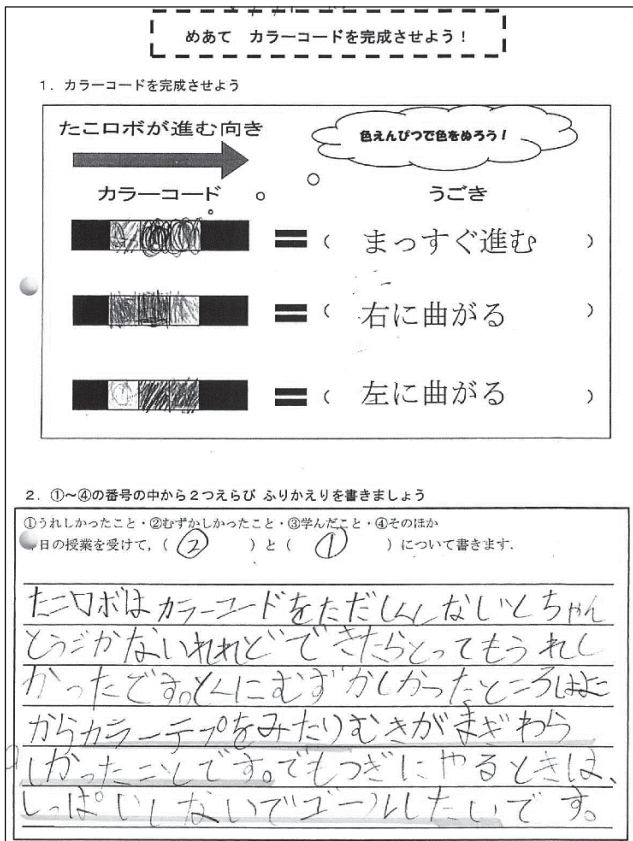 めあて　カラーコードを完成させよう！
1．カラーコードを完成させよう
たこロボが進む向き
色えんぴつで色をぬろう！
カラーコード　うごき
＝（　まっすぐ進む　）
＝（　右に曲がる　）
＝（　左に曲がる　）
2．①～④の番号の中から2つえらび ふりかえりを書きましょう
①うれしかったこと・②むずかしかったこと・③学んだこと・④そのほか
日の授業を受けて，（　②　）と（　①　）について書きます．
たこロボはカラーコードをただしくしないとちゃん
とうごかないけれどできたらとってもうれし
かったです。とくにむずかしかったところはよこ
からカラーテープをみたりむきがまぎわら
しかったことです。でもつぎにやるときは、
しっぱいしないでゴールしたいです。